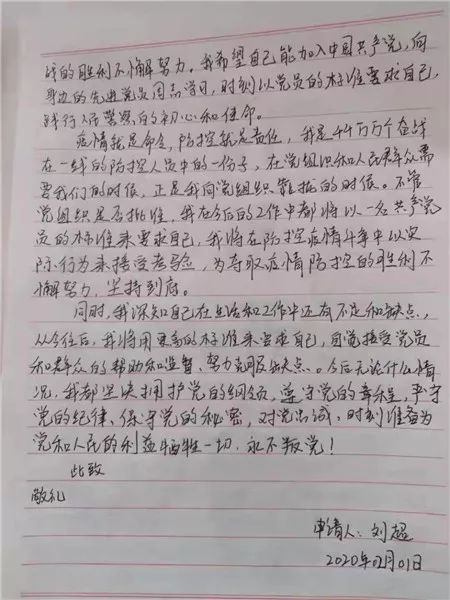 战的胜利不懈努力。我希望自己能加入中国共产党,向
身边的先进党员同志学习,时刻以党员的标准要求自己,
践行人民警察的初心和使命。
疫情就是命令,防控就是责任,我是千千万万个奋战
在一线的防控人员中的一份子,在党组织和人民群众需
要我们的时候,正是我向党组织靠拢的时候。不管
党组织是否批准,我在今后的工作中都将以一名共产党
员的标准来要求自己,我将在防控疫情斗争中以实
际行为来接受考验,为夺取疫情防控的胜利不
懈努力,坚持到底。
同时,我深知自己在生活和工作中还有不足和缺点,
从今往后,我将用更高的标准来要求自己,自觉接受党员
和群众的帮助和监督、努力克服缺点。今后无论什么情
况,我都坚决拥护党的纲领,遵守党的章程,严守
党的纪律、保守党的秘密,对党忠诚,时刻准备为
党和人民的利益牺牲一切,永不叛党!
此致
敬礼
申请人:刘超
2020年02月01日